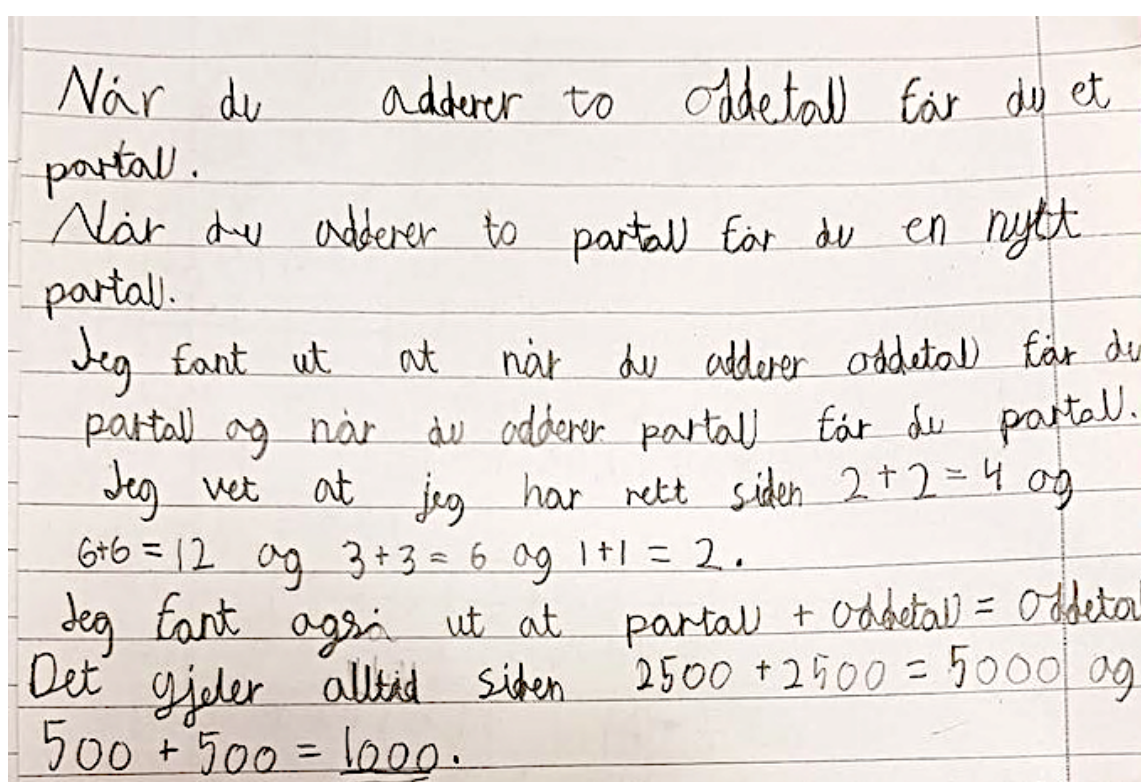 Når du adderer to oddetall får du et
partall.
Når du adderer to partall får du en nytt
partall.
Jeg fant ut at når du adderer oddetall får du
partall og når du adderer partall får du partall.
Jeg vet at jeg har rett siden 2+2=4 og
6+6=12 og 3+3=6 og 1+1=2.
Jeg fant også ut at partall + oddetall = oddetal
Det gjeler alltid siden 2500+2500=5000 og
500+500=1000.